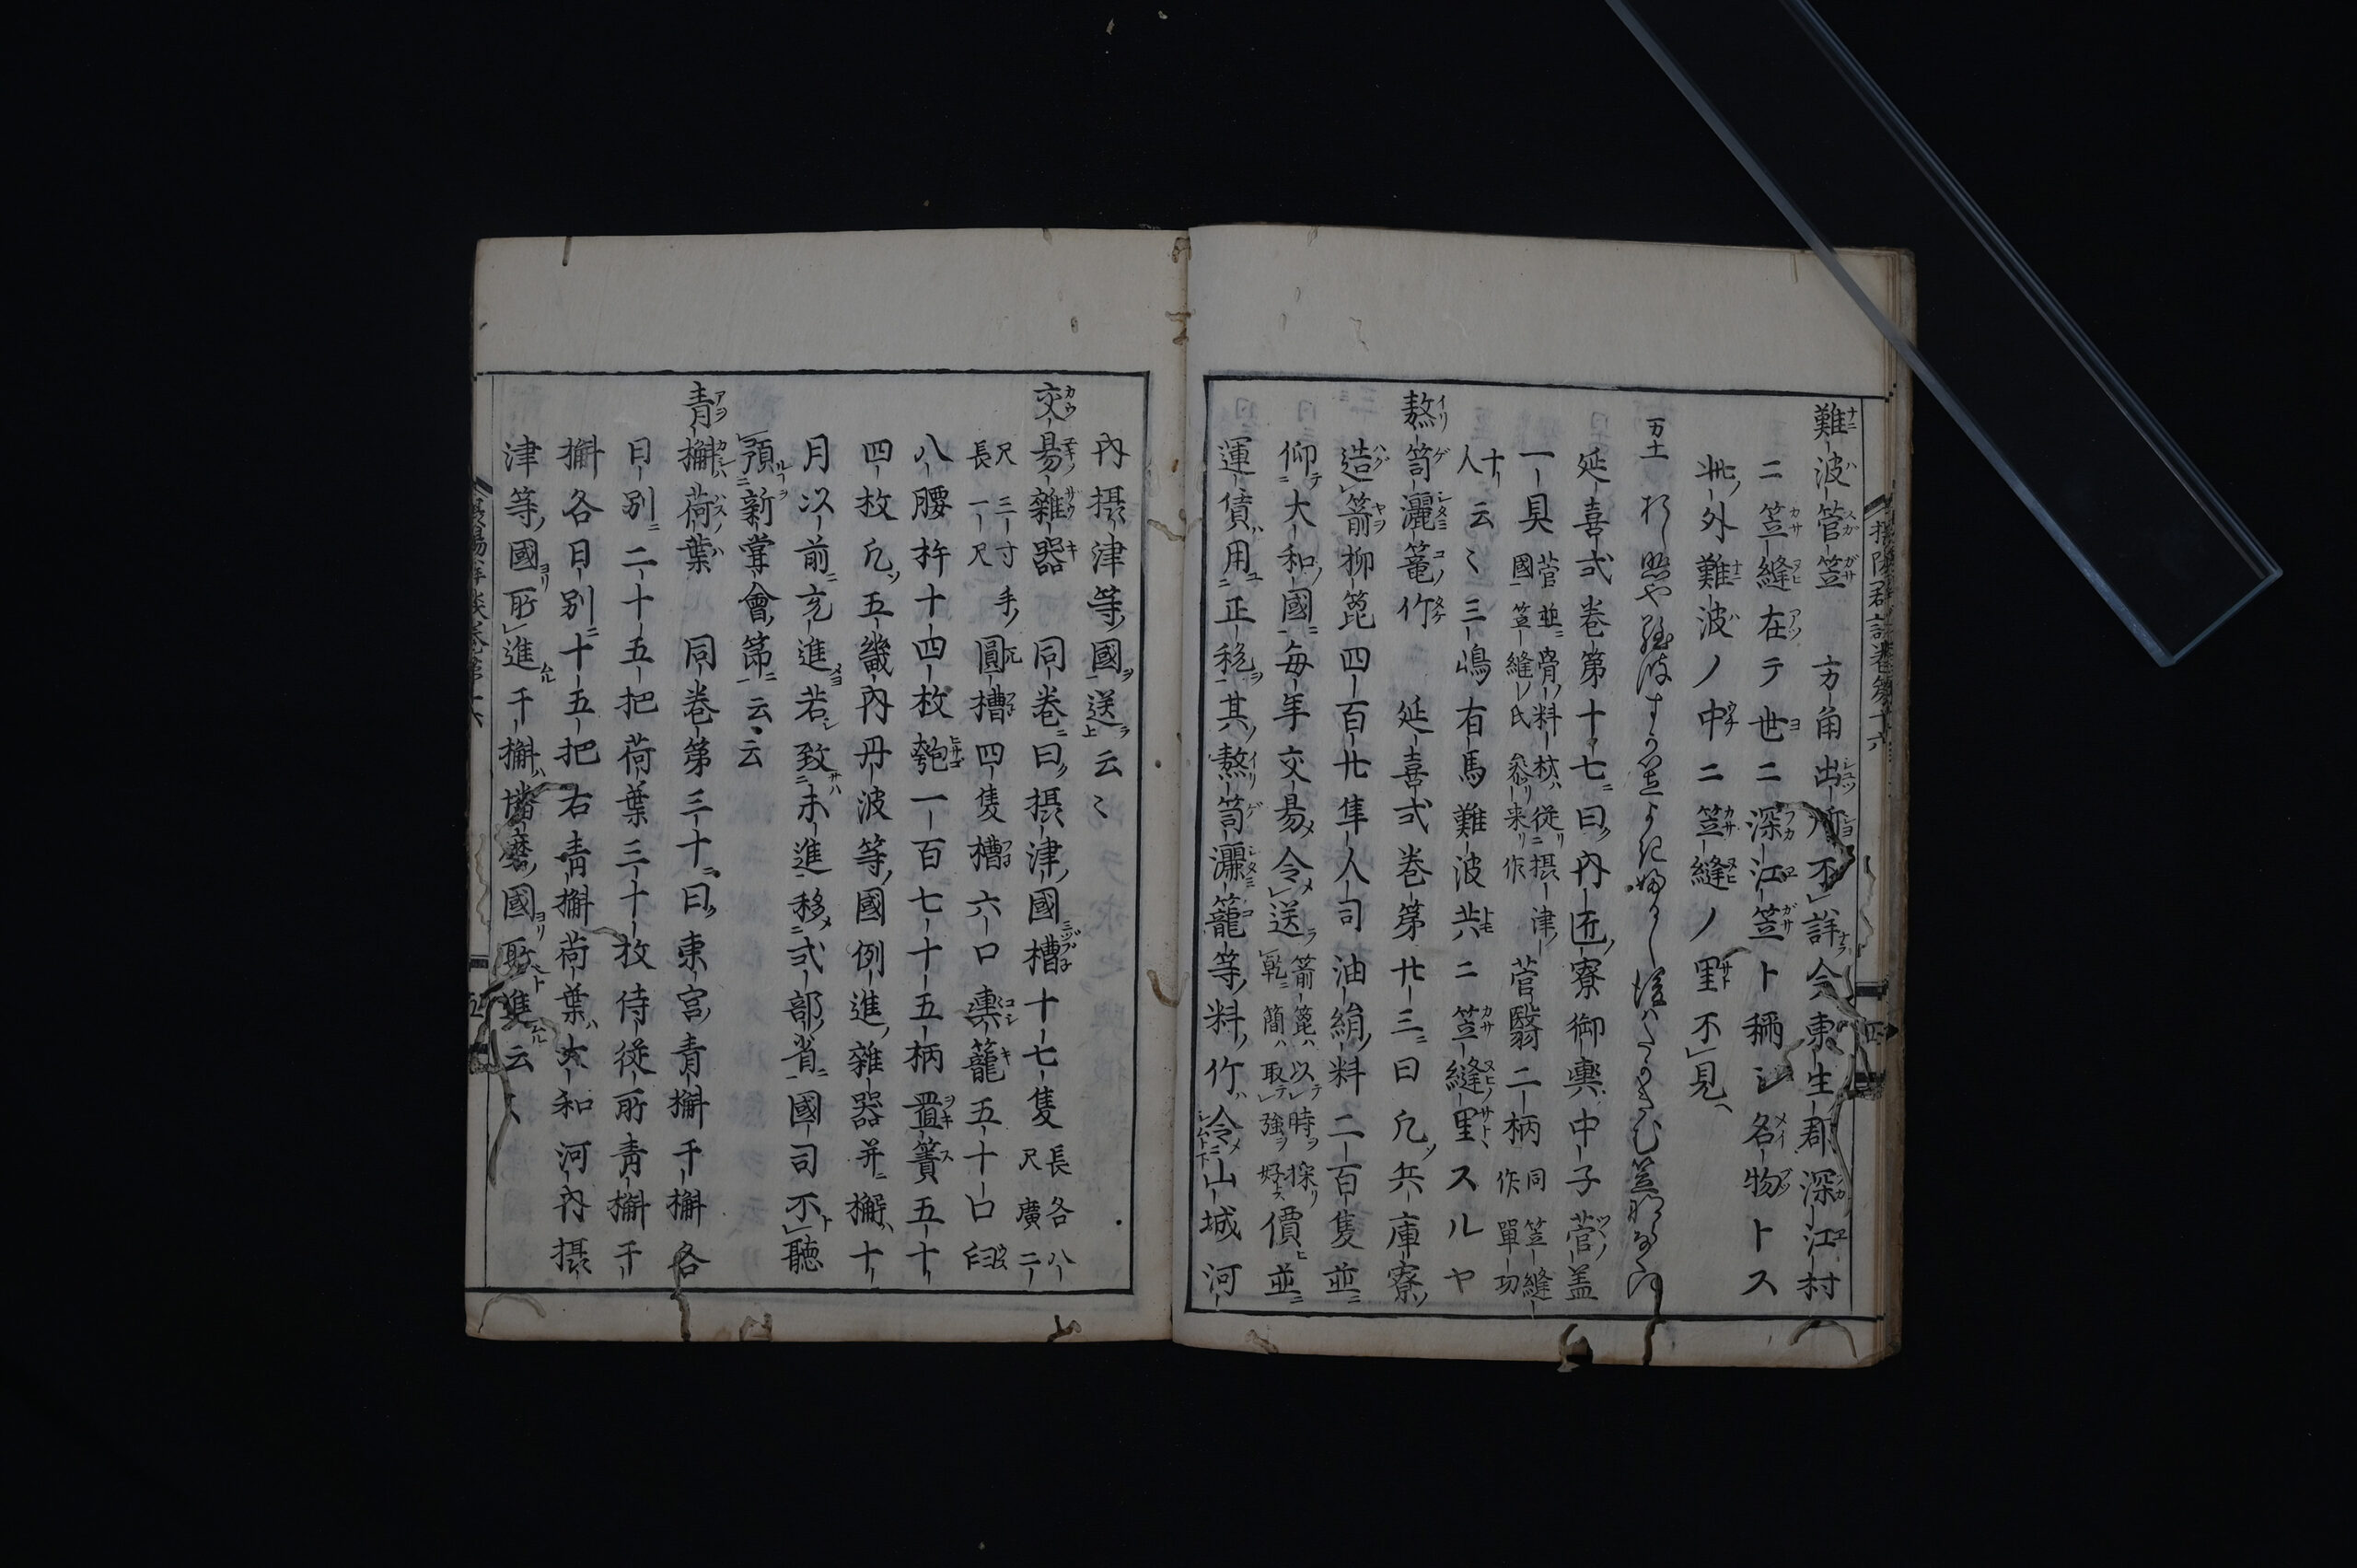 難波管笠 方角出所不詳今東生郡深江村
ニ笠縫在テ世ニ深江笠ト稱シ名物トス
此外難波ノ中ニ笠縫ノ里不見
万十一
延喜式巻第十七曰内匠寮御輿中子菅盖
一具 菅並骨料材従摂津國笠縫氏参来作 菅翳二柄 同笠縫作單功
十人云〻三嶋有馬難波共ニ笠縫里スルヤ
熬笥灑篭竹 延喜式巻第廿三曰凡兵庫寮
造箭柳箆四百廿隼人司油絹料二百隻並
仰大和國毎年交易令送 箭箆以時採乾簡取強好 價並
運賃用正税其熬笥灑籠等料竹令山城河
内摂津等國送云〻
交易雑器 同巻曰摂津國槽十七隻 長各八尺廣二
尺三寸手長一尺 圓槽四隻槽六口輿籠五十口臼
八腰杵十四枚匏一百七十五柄置簀五十
四枚凡五畿内丹波等國例進雑器并檞十
月以前充進若致未進移式部省國司不聽
預新甞會節云云
青檞荷葉 同巻第三十曰東宮青檞千檞各
日別二十五把荷葉三十枚侍従所青檞千
檞各日別十五把右青檞荷葉大和河内摂
津等國所進千檞播磨國所進云〻